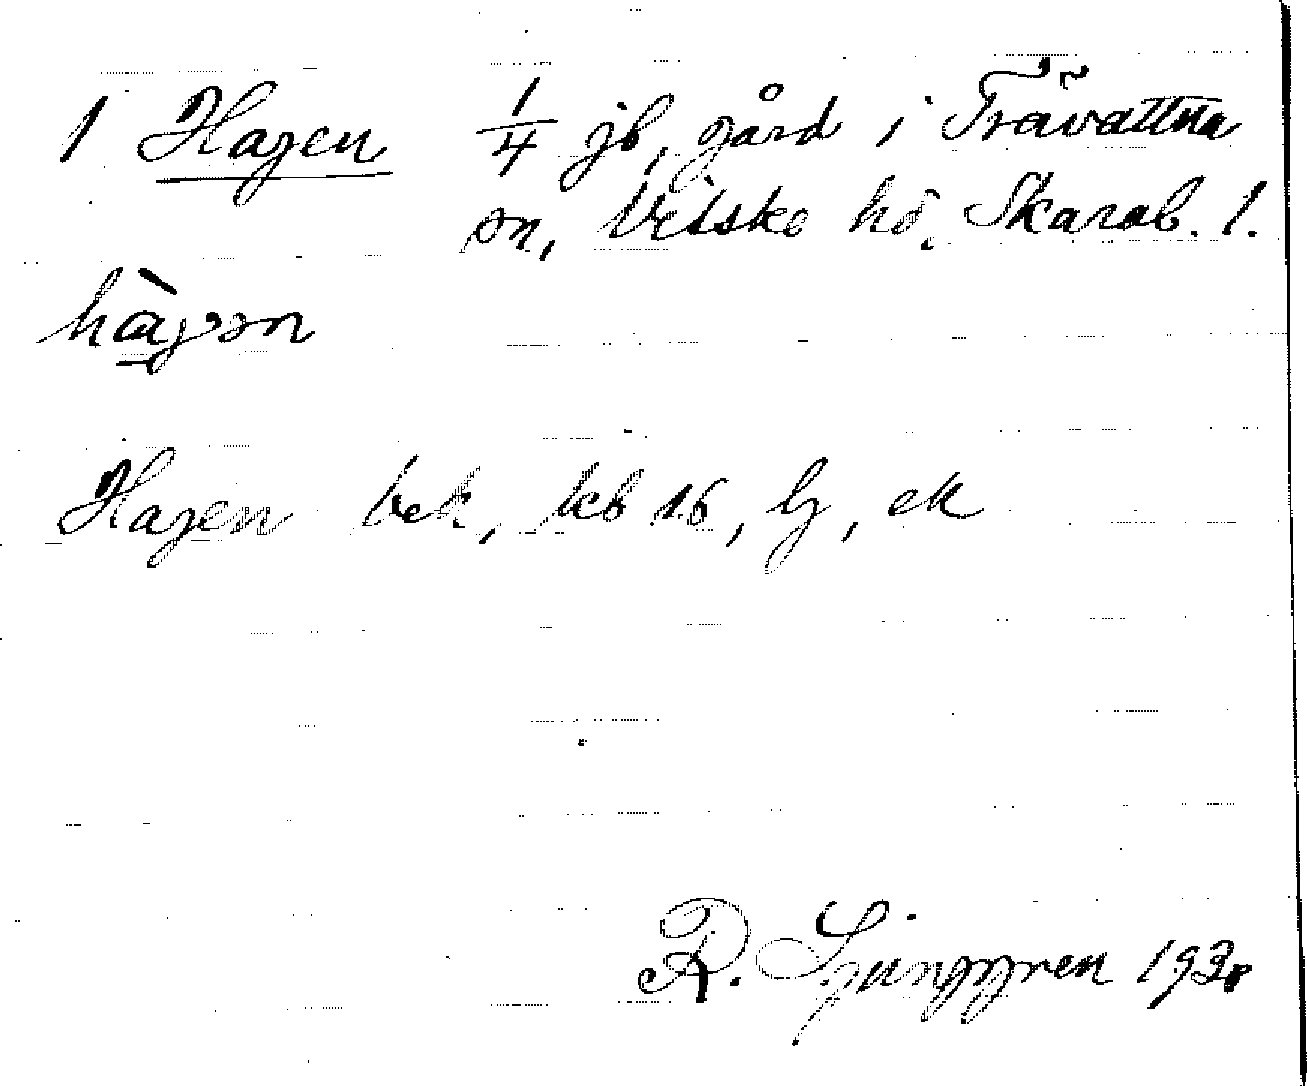 1 Hagen 1/4 jb, gård i Trävattna
sn, Vilske hd. Skarab. l.
hàgən
Hagen bek, kb 16, lj, ek
R. Ljunggren 1930